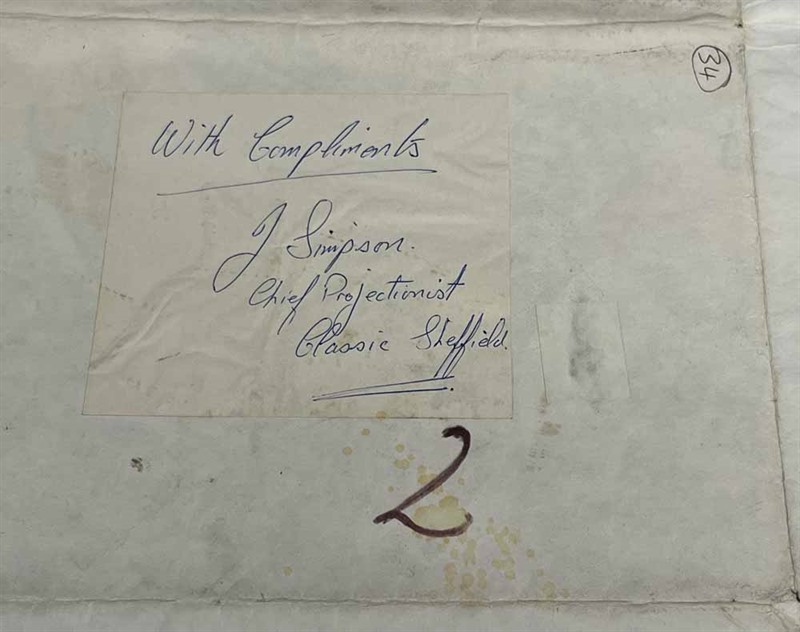 34
With Compliments
J Simpson.
Chief Projectionist
Classic Sheffield.
2